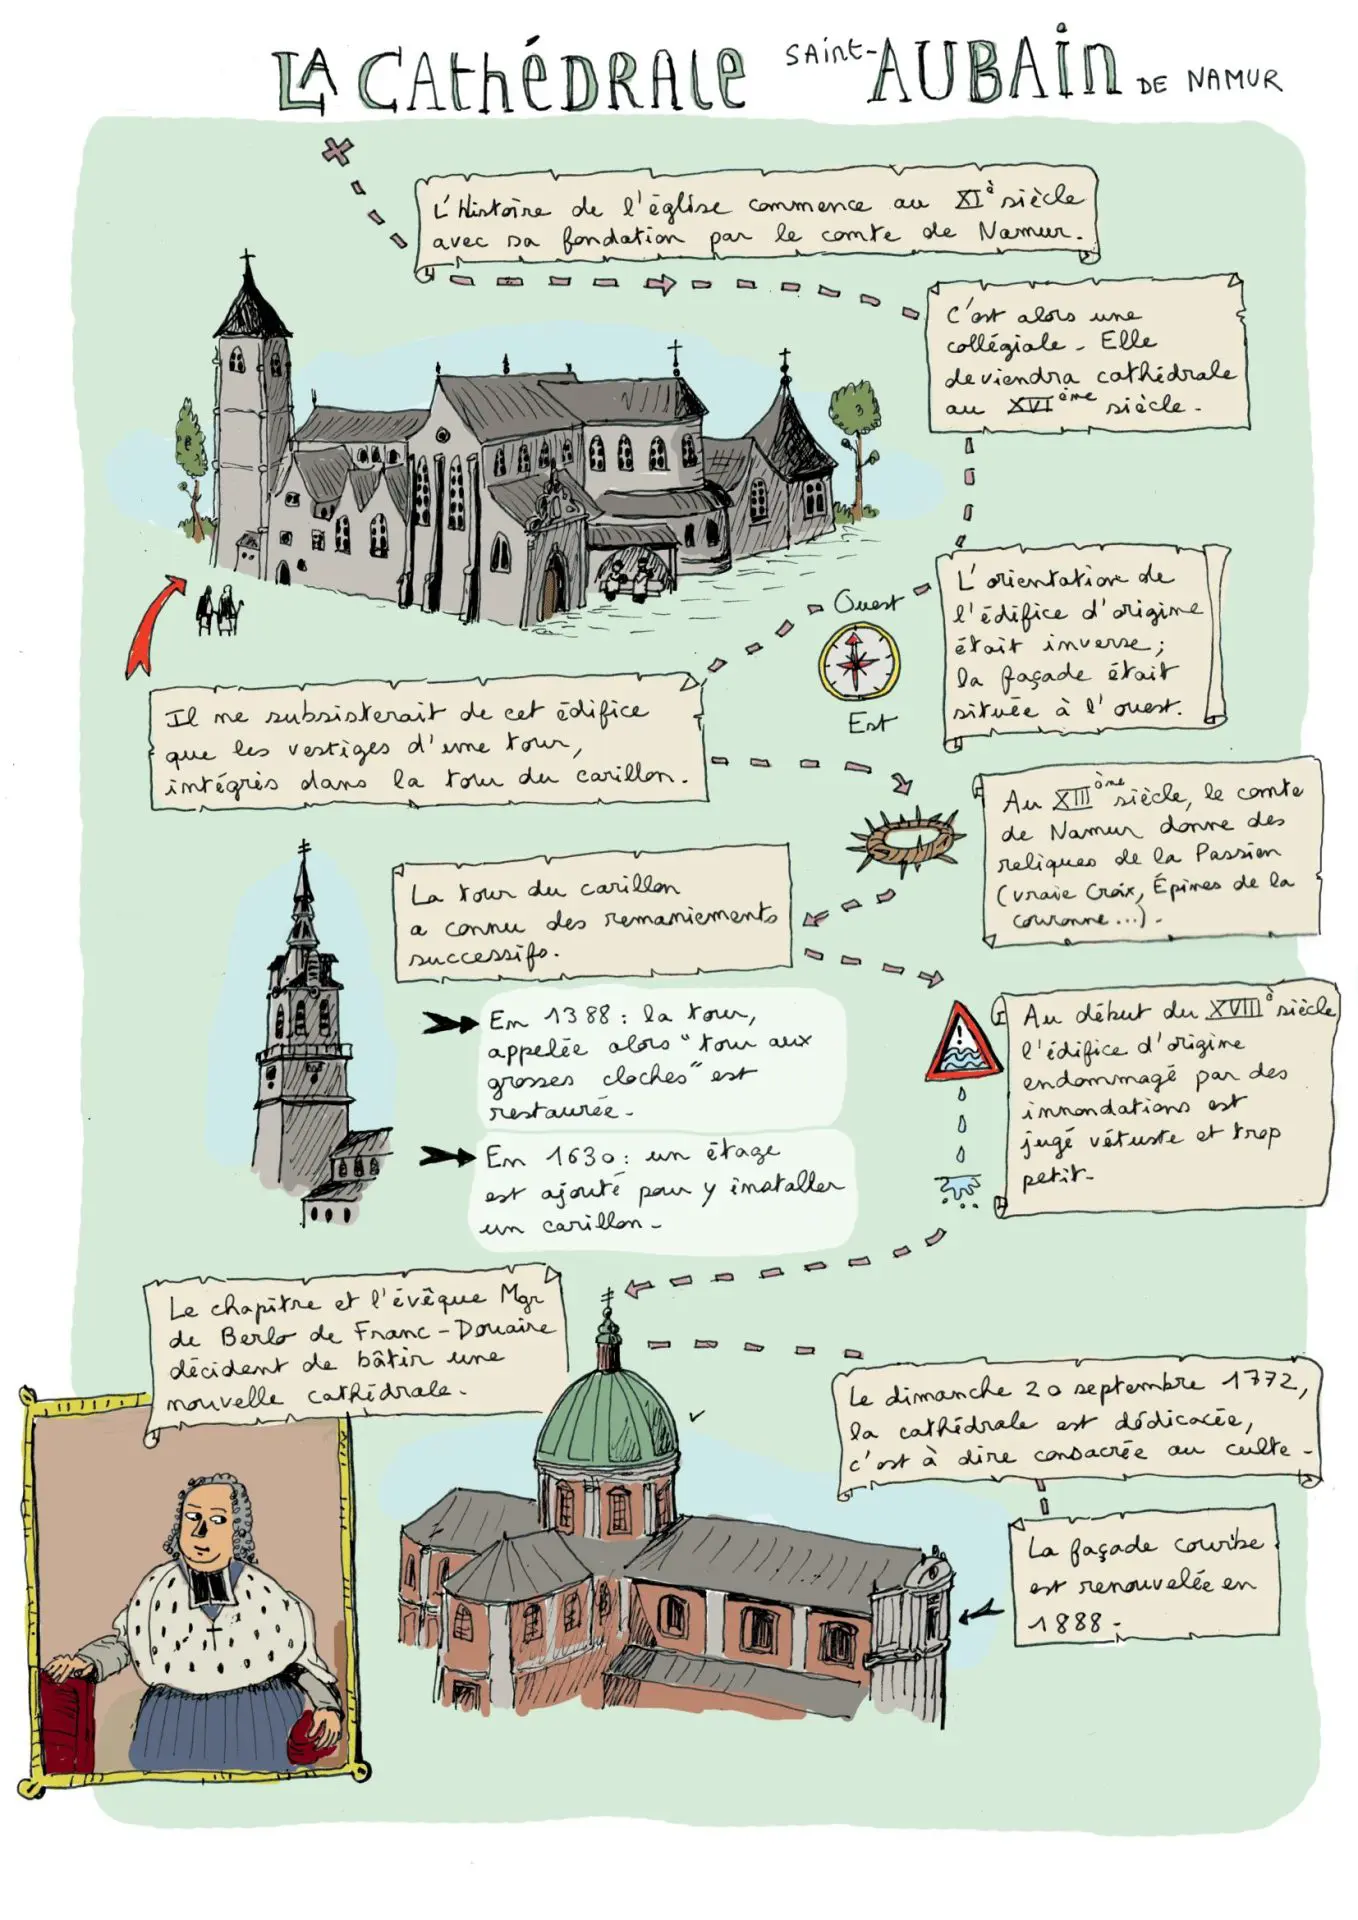 LA CAthéDRAlE SAint-AUBAin DE NAMUR
L'Histoire de l'église commence au XIè siècle
avec sa fondation par le comte de Namur.
C'est alors une
collégiale. Elle
deviendra cathédrale
au XVIème siècle.
L'orientation de
l'édifice d'origine
était inverse ;
la façade était
située à l'ouest.
Ouest
Est
Il ne subsisterait de cet édifice
que les vestiges d'une tour,
intégrés dans la tour du carillon.
Au XIIIème siècle, le comte
de Namur donne des
reliques de la Passion
(vraie Croix, Épines de la
couronne...).
La tour du carillon
a connu des remaniements
successifs.
En 1388 : la tour,
appelée alors "tour aux
grosses cloches" est
restaurée.
En 1630 : un étage
est ajouté pour y installer
un carillon.
Au début du XVIIIè siècle
l'édifice d'origine
endommagé par des
innondations est
jugé vétuste et trop
petit.
Le chapitre et l'évêque Mgr
de Berlo de Franc-Douaire
décident de bâtir une
nouvelle cathédrale.
Le dimanche 20 septembre 1772,
la cathédrale est dédicacée,
c'est à dire consacrée au culte.
La façade courbe
est renouvelée en
1888.